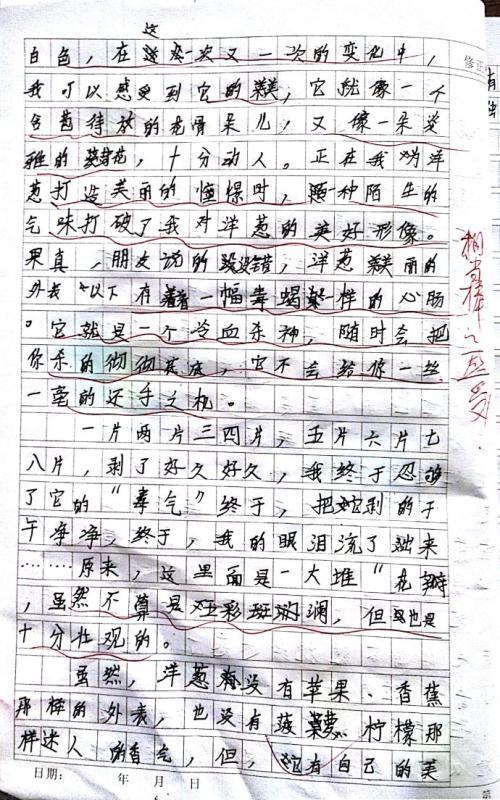 这
白色，在这一次又一次的变化中，
我可以感受到它的美；它就像一个
含苞待放的花骨朵儿，又像一朵淡
雅的菊花，十分动人。正在我为洋
葱打造美丽的憧憬时，一种陌生的
气味打破了我对洋葱的美好形像。
果真，朋友说的没错，洋葱美丽的
外表以下有着一幅毒蝎一样的心肠
。它就是一个冷血杀神，随时会把
你杀的彻彻底底，它不会给你一丝
一毫的还手之机。
一片两片三四片，五片六片七
八片，剥了好久好久，我终于忍够
了它的“毒气”终于，把它剥的干
干净净，终于，我的眼泪流了出来
……原来，这里面是一大堆“花瓣
，虽然不算是五彩斑斓，但也是
十分壮观的。
虽然，洋葱没有苹果、香蕉
那样的外表，也没有菠萝、柠檬那
样迷人的香气，但，它有自己的美
日期： 年 月 日
修正
第